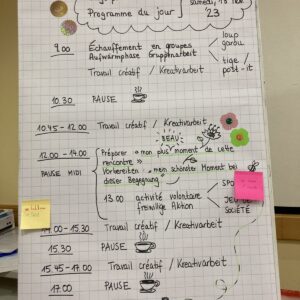 samedi, 18 nov.
Programme du jour '23
9.00 Échauffement en groupes
Aufwärmphase Gruppenarbeit
loup
garou
tige /
post-it
Travail créatif / Kreativarbeit
10.30 PAUSE
10.45 - 12.00 Travail créatif / Kreativarbeit
BEAU
12.00 - 14.00 Préparer « mon plus moment de cette
rencontre »
PAUSE MIDI Vorbereiten « mein schönster Moment bei
dieser Begegnung »
13.00 activité volontaire
freiwillige Aktion
SPO
JEU DE
SOCIÉTÉ
14.00 - 15.30 Travail créatif / Kreativarbeit
15.30 PAUSE
15.45 - 17.00 Travail créatif / Kreativarbeit
17.00 PAUSE